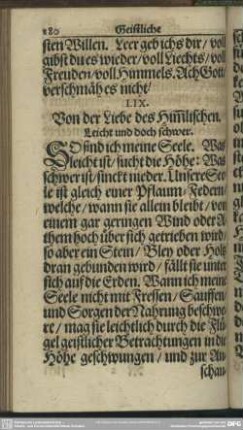 280 Geistliche
sten Willen. Leer geb ichs dir / voll
gibst du es wieder / voll Liechts / voll
Freuden / voll Himmels. Ach Gott
verschmäh es nicht /
LIX.
Von der Liebe des Him̃lischen.
Leicht und doch schwer.
SO find ich meine Seele. Was
Leicht ist / sucht die Höhe: Was
schwer ist / sincket nieder. Unsere See-
le ist gleich einer Pflaum-Federn
welche / wann sie allein bleibt / von
einem gar geringen Wind oder A-
them hoch über sich getrieben wird /
so aber ein Stein / Bley oder Holtz
dran gebunden wird / fällt sie unter
sich auf die Erden. Wann ich meine
Seele nicht mit Fressen / Sauffen
und Sorgen der Nahrung beschwe-
re / mag sie leichtlich durch die Flü-
gel geistlicher Betrachtungen in die
Höhe geschwungen / und zur An-
schau